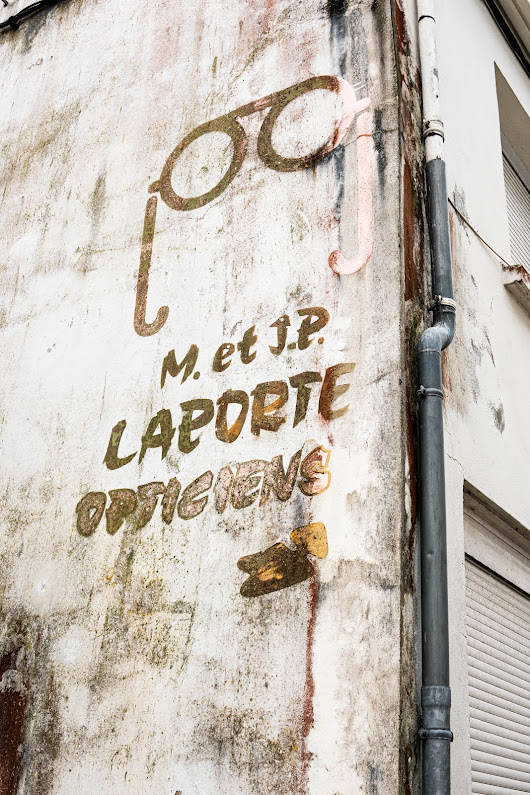 M. et J.P.
LAPORTE
OPTICIENS